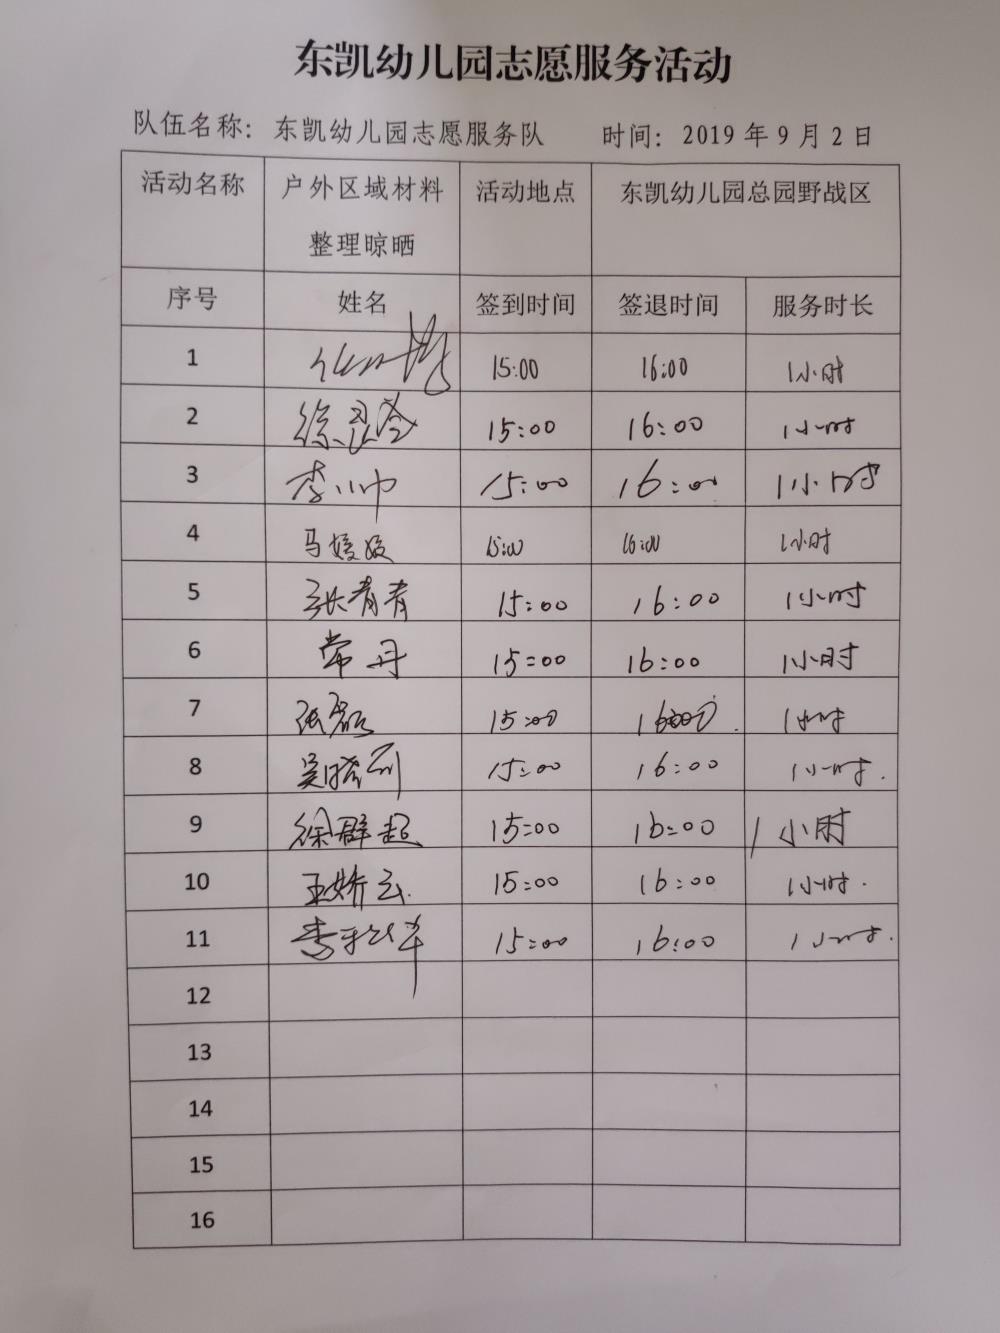 东凯幼儿园志愿服务活动
队伍名称：东凯幼儿园志愿服务队 时间：2019年9月2日
活动名称 户外区域材料 活动地点 东凯幼儿园总园野战区
整理晾晒
序号 姓名 签到时间 签退时间 服务时长
1 15:00 16:00 1小时
2 15:00 16:00 1小时
3 李小巾 15:00 16:00 1小时
4 马媛媛 15:00 16:00 1小时
5 张青青 15:00 16:00 1小时
6 常丹 15:00 16:00 1小时
7 张 15:00 1小时
8 吴晓 15:00 16:00 1小时.
9 徐群超 15:00 16:00 1小时
10 王娇云 15:00 16:00 1小时.
11 李 15:00 16:00 1小时.
12
13
14
15
16